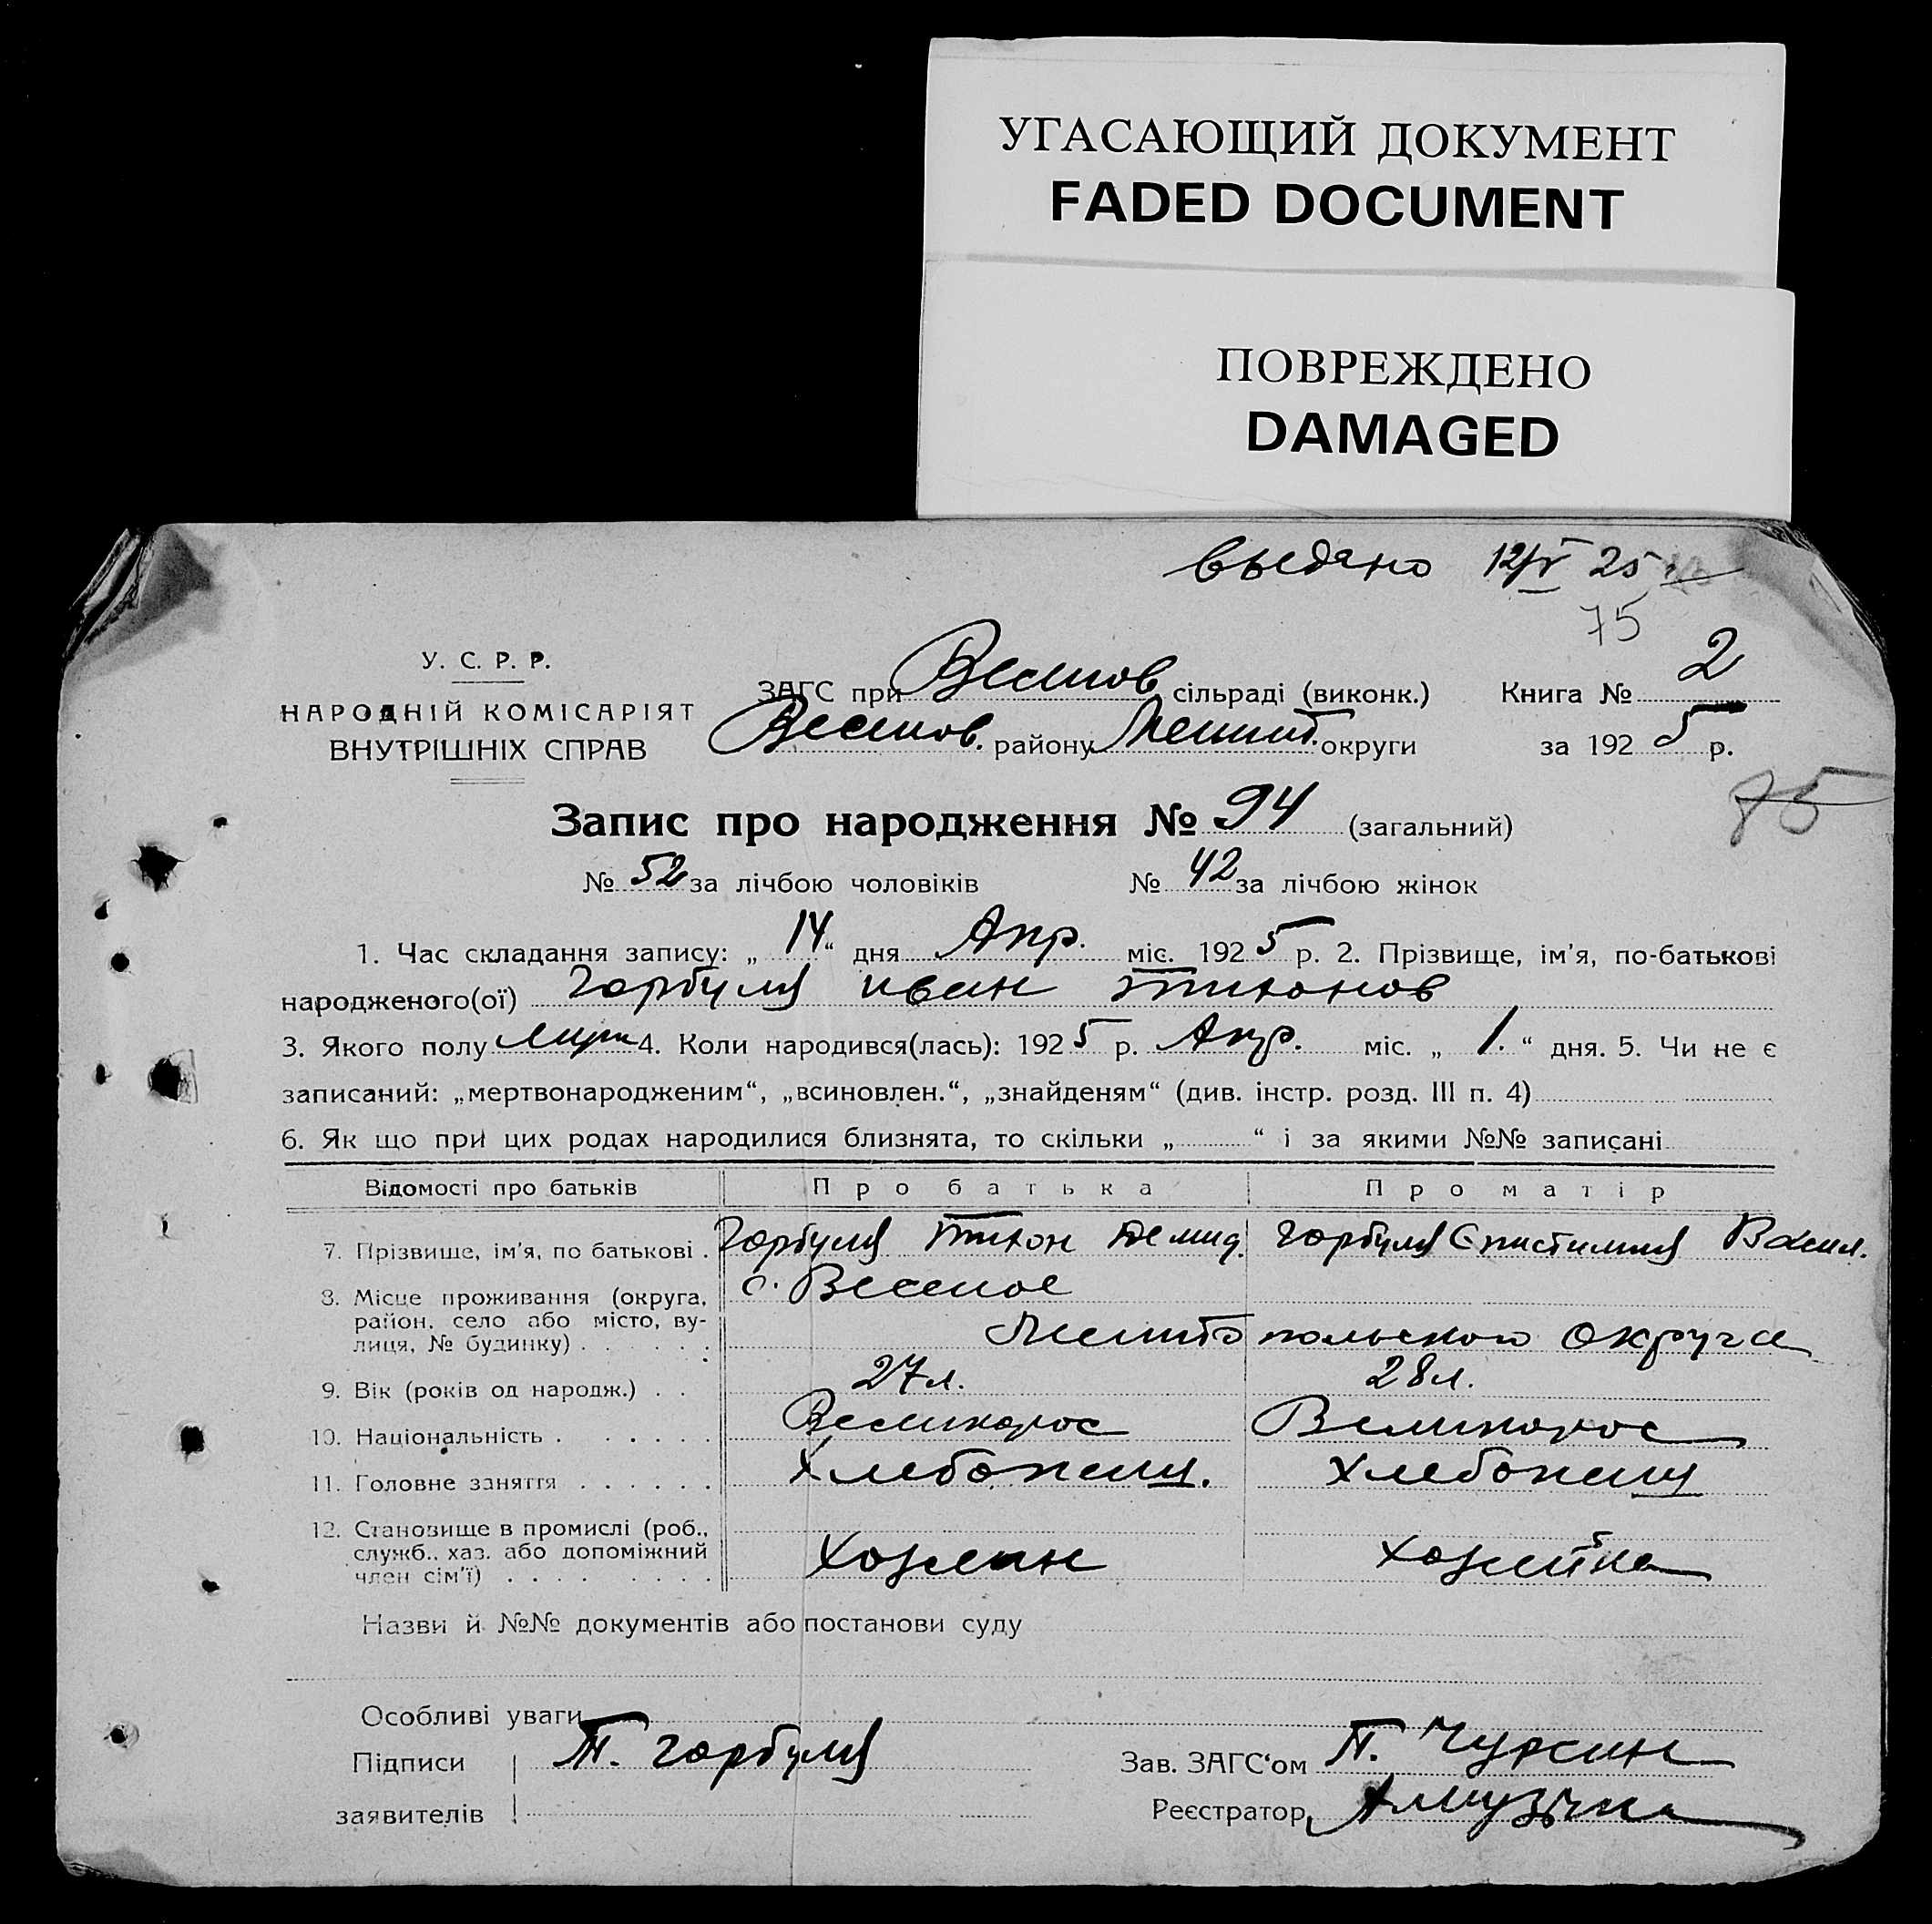 УГАСАЮЩИЙ ДОКУМЕНТ
FADED DOCUMENT
ПОВРЕЖДЕНО
DAMAGED
выдано 12/V 25
75
У. С. Р. Р.
НАРОДНІЙ КОМІСАРІЯТ
ВНУТРІШНІХ СПРАВ
ЗАГС при Веселов сільраді (виконк.) Книга № 2
Веселов. району Мелит. округи за 1925 р.
75
Запис про народження № 94 (загальний)
№ 52 за лічбою чоловіків № 42 за лічбою жінок
1. Час складання запису: „ 14 “ дня Апр. міс. 1925 р. 2. Прізвище, ім'я, по-батькові
народженого(ої) Горбуля иван тихонов
3. Якого полу 4. Коли народився(лась): 1925 р. Апр. міс. „ 1. “ дня. 5. Чи не є
записаний: „мертвонародженим“, „всиновлен.“, „знайденям“ (див. інстр. розд. III п. 4)
6. Як що при цих родах народилися близнята, то скільки „ “ і за якими №№ записані
Відомості про батьків Про батька Про матір
7. Прізвище, ім'я, по батькові . Горбуля тихон демид. Горбуля Єпистимия Васил.
8. Місце проживання (округа, район, село або місто, вулиця, № будинку) . . . . . . с. Веселое
Мелитопольского округа
9. Вік (років од народж.) . . 27 л. 28 л.
10. Національність . . . . . . Великорос Великорос
11. Головне заняття . . . . . . Хлебопаш. Хлебопаш
12. Становище в промислі (роб., служб., хаз. або допоміжний член сім'ї) . . . . . . . . Хозяин Хозяйка
Назви й №№ документів або постанови суду
Особливі уваги
Підписи Т. Горбуля Зав. ЗАГС'ом П. Чурсин
заявителів Реєстратор